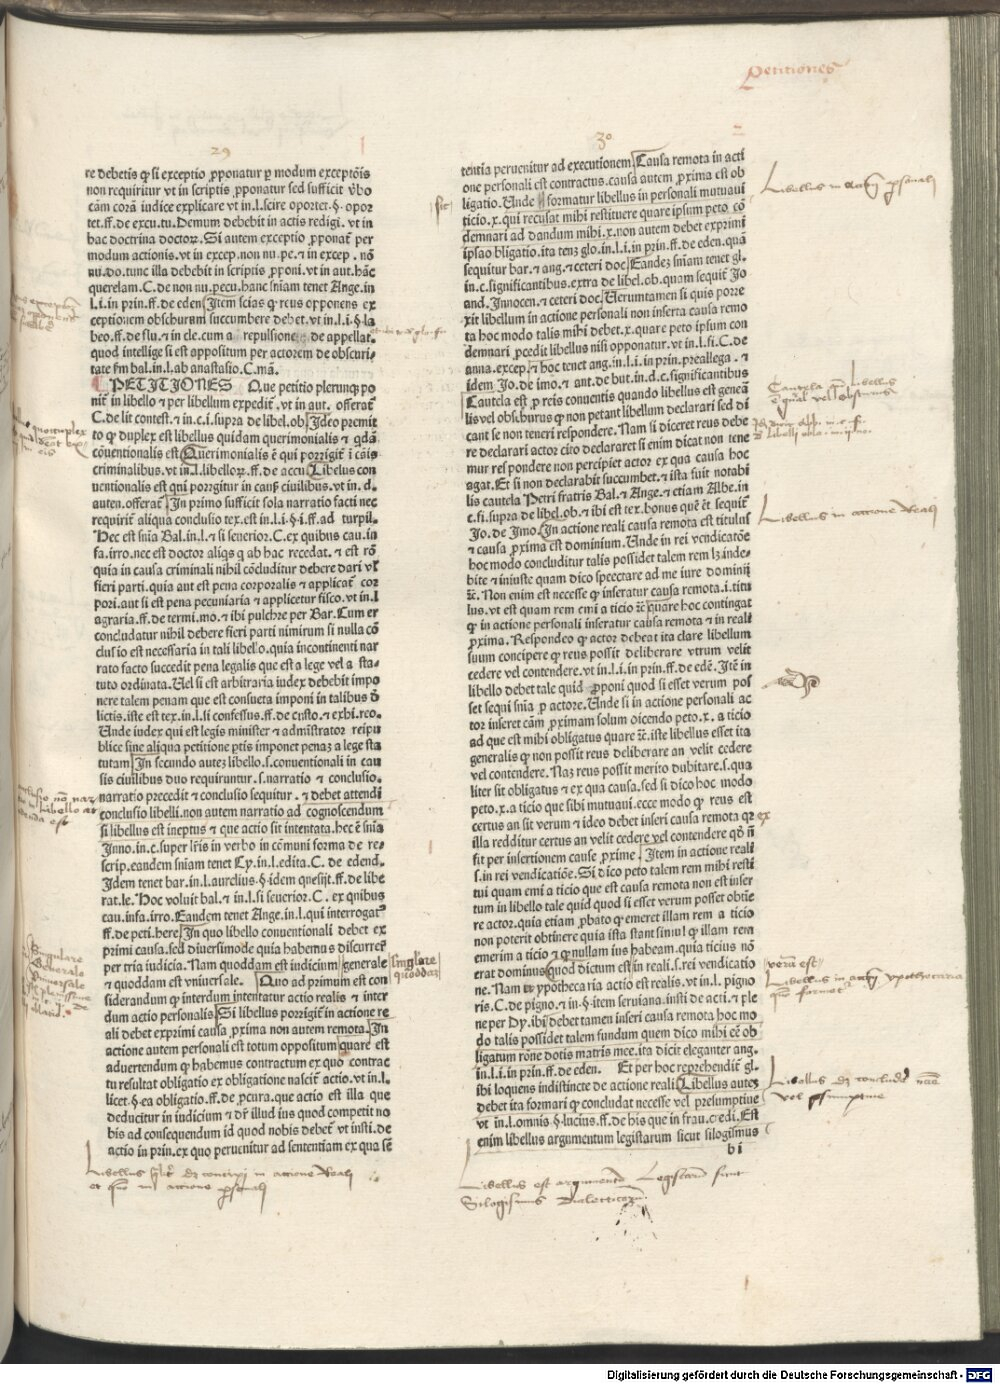 Petitiones
29
re debetis ꝙ si exceptio ꝓponatur ꝑ modum exceptõis
non requiritur vt in scriptis ꝓponatur sed sufficit ṽbo
cãm corã iudice explicare vt in.l.scire oportet.§.opor
tet.ff.de excu.tu.Demum debebit in actis redigi.vt in
hac doctrina doctoꝝ.Si autem exceptio ꝓponat᷑ per
modum actionis.vt in excep.non nu.pe.⁊ in excep.nõ
nu.do.tunc illa debebit in scriptis ꝓponi.vt in aut.hãc
querelam.C.de non nu.pecu.hanc sñiam tenet Ange.in
l.i.in prin.ff.de eden Item scias ꝙ reus opponens ex
ceptionem obscuram succumbere debet.vt in.l.i.§.la
beo.ff.de flu.⁊ in cle.cum a repulsione de appellat.
quod intellige si est appositum per actorem de obscuri-
tate fm bal.in.l.ab anastasio.C.mã.
PETITIONES Que petitio plerunqꝫ po
nit᷑ in libello ⁊ per libellum expedit᷑.vt in aut. offerat᷑
C.de lit contest.⁊ in.c.i.supra de libel.ob. Ideo premit
to ꝙ duplex est libellus quidam querimonialis ⁊ qdã
cõuentionalis est Querimonialis ẽ qui porrigit᷑ ĩ cãis
criminalibus.vt in.l.libelloꝝ.ff.de accu Libellus con
uentionalis est qui porrgitur in cauſ ciuilibus.vt in.d.
auten.offerat᷑ In primo sufficit sola narratio facti nec
requirit᷑ aliqua conclusio tex.est in.l.i.§.i.ff.ad turpil.
Hec est sñia Bal.in.l.⁊ si seuerior.C.ex quibus cau.in
fa.irro.nec est doctor aliqs q ab hac recedat.⁊ est rõ
quia in causa criminali nihil cõcluditur debere dari vl᷑
fieri parti.quia aut est pena corporalis ⁊ applicat᷑ cor
pori.aut si est pena pecuniaria ⁊ applicetur fisco.vt in.l
agraria.ff.de termi.mo.⁊ ibi pulchre per Bar.Cum er
concludatur nihil debere fieri parti nimirum si nulla cõ
clusio est necessaria in tali libello.quia incontinenti nar
rato facto succedit pena legalis que est a lege vel a sta-
tuto ordinata.Uel si est arbitraria iudex debebit impo
nere talem penam que est consueta imponi in talibus ď
lictis.iste est tex.in.l.si confessus.ff.de custo.⁊ exhi.reo.
Unde iudex qui est legis minister ⁊ admĩstrator reipu
blice sine aliqua petitione ꝑtis imponet penaꝫ a lege sta
tutam In secundo auteꝫ libello.s.conuentionali in cau
sis ciuilibus duo requiruntur.s.narratio ⁊ conclusio.
narratio precedit ⁊ conclusio sequitur.⁊ debet attendi
conclusio libelli.non autem narratio ad cognoscendum
si libellus est ineptus ⁊ que actio sit intentata.hec ẽ sñia
Inno.in.c.super lr̃is in verbo in cõmuni forma de re-
scrip.eandem sñiam tenet Cy.in.l.edita.C. de edend.
Idem tenet bar.in.l.aurelius.§.idem quesijt.ff.de libe
rat.le.Hoc voluit bal.⁊ in.l.si seuerior.C. ex quibus
cau.infa.irro.Eandem tenet Ange.in.l.qui interrogat᷑
ff.de peti.here In quo libello conuentionali debet ex
primi causa.sed diuersimode quia habemus discurreñ
per tria iudicia.Nam quoddam est iudicium generale
⁊ quoddam est vniuersale. Quo ad primum est con
siderandum ꝙ interdum intentatur actio realis ⁊ inter
dum actio personalis Si libellus porrigit᷑ in actione re
ali debet exprimi causa ꝓxima non autem remota. In
actione autem personali est totum oppositum quare est
aduertendum ꝙ habemus contractum ex quo contrac
tu resultat obligatio ex obligatione nascit᷑ actio.vt in.l.
licet.§.ea obligatio.ff.de ꝓcura.que actio est illa que
deducitur in iudicium ⁊ dr᷑ illud ius quod competit no
bis ad consequendum id quod nobis debet᷑ vt insti.de
actio in prin.ex quo peruenitur ad sententiam ex qua sẽ
30
tentia peruenitur ad executionem Causa remota in acti
one personali est contractus.causa autem ꝓxima est ob
ligatio.Unde formatur libellus in personali mutuaui
ticio.x.qui recusat mihi restituere quare ipsum peto cõ
demnari ad dandum mihi.x.non autem debet exprimi
ipsao bligatio.ita tenꝫ glo.in.l.i.in prin.ff.de eden.quã
sequitur bar.⁊ ang.⁊ ceteri doc. Eandeꝫ sñiam tenet gl.
in.c.significantibus.extra de libel.ob.quam sequit᷑ Jo
and.Innocen.⁊ ceteri doc. Uerumtamen si quis porre
xit libellum in actione personali non inserta causa remo
ta hoc modo talis mihi debet.x.quare peto ipsum con
demnari ꝓcedit libellus nisi opponatur.vt in.l.fi.C.de
anna.excep. ⁊ hoc tenet ang.in.l.i.in prin.preallega.⁊
idem Jo.de imo.⁊ ant.de but.in.d.c.significantibus
Cautela est ꝓ reis conuentis quando libellus est geneã
lis vel obschurus ꝙ non petant libellum declarari sed di
cant se non teneri respondere.Nam si diceret reus debe
re declarari actor cito declararet si enim dicat non tene
mur respondere non percipiet actor ex qua causa hoc
agat.Et si non declarabit succumbet.⁊ ista fuit notabi
lis cautela Petri fratris Bal.⁊ Ange.⁊ etiam Albe.in
c.fi.supra de libel.ob.⁊ ibi est tex.bonus quẽ ẽt sequit᷑
Jo.de Imo. In actione reali causa remota est titulus
⁊ causa ꝓxima est dominium.Unde in rei vendicatõe
hoc modo concluditur talis possidet talem rem lꝫ inde-
bite ⁊ iniuste quam dico spectare ad me iure dominij
⁊c̃.Non enim est necesse ꝙ inseratur causa remota.i.titu
lus.vt est quam rem emi a ticio ⁊c̃ quare hoc contingat
ꝙ in actione personali inseratur causa remota ⁊ in reali
ꝓxima.Respondeo ꝙ actor debeat ita clare libellum
suum concipere ꝙ reus possit deliberare vtrum velit
cedere vel contendere.vt in.l.i.in prin.ff.de edẽ.Itẽ in
libello debet tale quid ꝓponi quod si esset verum pos
set sequi sñia ꝓ actore.Unde si in actione personali ac
tor inseret cãm ꝓximam solum dicendo peto.x.a ticio
ad que est mihi obligatus quare ⁊c̃.iste libellus esset ita
generalis ꝙ non possit reus deliberare an velit cedere
vel contendere.Naꝫ reus possit merito dubitare.s.qua
liter sit obligatus ⁊ ex qua causa.sed si dico hoc modo
peto.x.a ticio que sibi mutuaui.ecce modo ꝙ reus est
certus an sit verum ⁊ ideo debet inseri causa remota qꝛ ex
illa redditur certus an velit cedere vel contendere qď ñ
fit per insertionem cause ꝓxime. Item in actione reali
s.in rei vendicatiõe.Si dico peto talem rem mihi resti
tui quam emi a ticio que est causa remota non est inser
tum in libello tale quid quod si esset verum posset obtie
re actor.quia etiam ꝓbato ꝙ emeret illam rem a ticio
non poterit obtinere quia ista stant simul ꝙ illam rem
emerim a ticio ⁊ ꝙ nullam ius habeam.quia ticius nõ
erat dominus Quod dictum est in reali.s.rei vendicatio
ne.Nam in ypothecaria actio est realis.vt in.l.pigno
ris.C.de pigno.⁊ in.§.item seruiana.insti.de acti.⁊ ple
ne per Dy.ibi debet tamen inseri causa remota hoc mo
do talis possidet talem fundum quem dico mihi eẽ ob
ligatum rõne dotis matris mee.ita dicit eleganter ang.
in.l.i.in prin.ff.de eden. Et per hoc reprehendit᷑ gl.
ibi loquens indistincte de actione reali Libellus auteꝫ
debet ita formari ꝙ concludat necesse vel presumptiue
vt in.l.omnis §.lucius.ff.de his que in frau.credi.Est
enim libellus argumentum legistarum sicut silogismus
b i
Libellus in actione personali
sic
Cautela quando libellus
Libellus in actione reali
Singulare
Generale
Uniuersale
Singlare
quoddaꝫ
verũ est
Libellus in actione ypothecaria
quomodo formatur
Libellus debet concludere
vel presumptiue
in actione reali
et quomodo in actione personali
Libellus est argumentum Legistarum sicut
Silogismus Dialecticorum
Digitalisierung gefördert durch die Deutsche Forschungsgemeinschaft - DFG